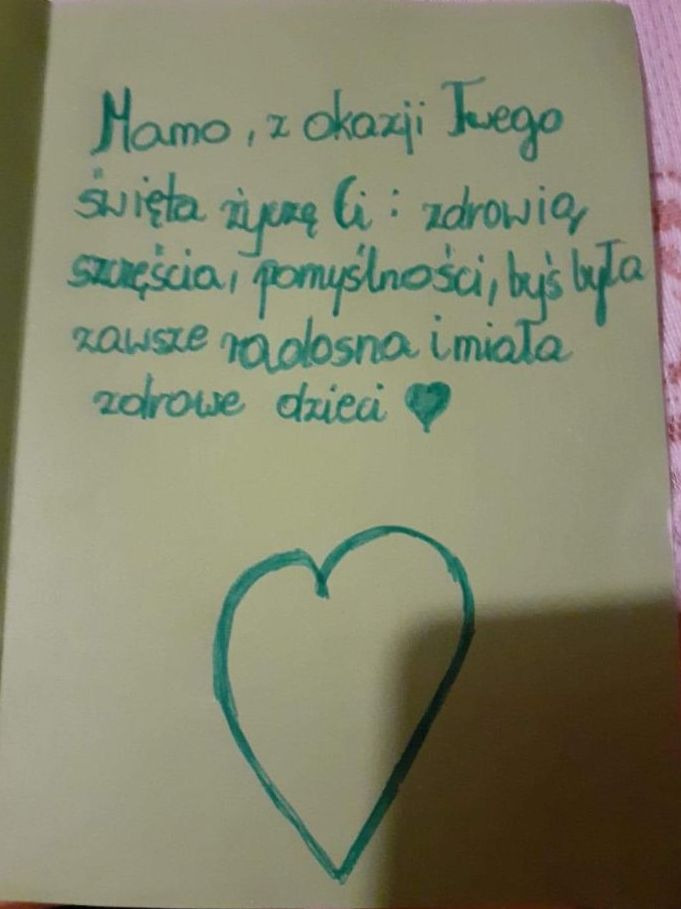 Mamo, z okazji Twego
święta życzę Ci: zdrowia,
szczęścia, pomyślności, byś była
zawsze radosna i miała
zdrowe dzieci ♥